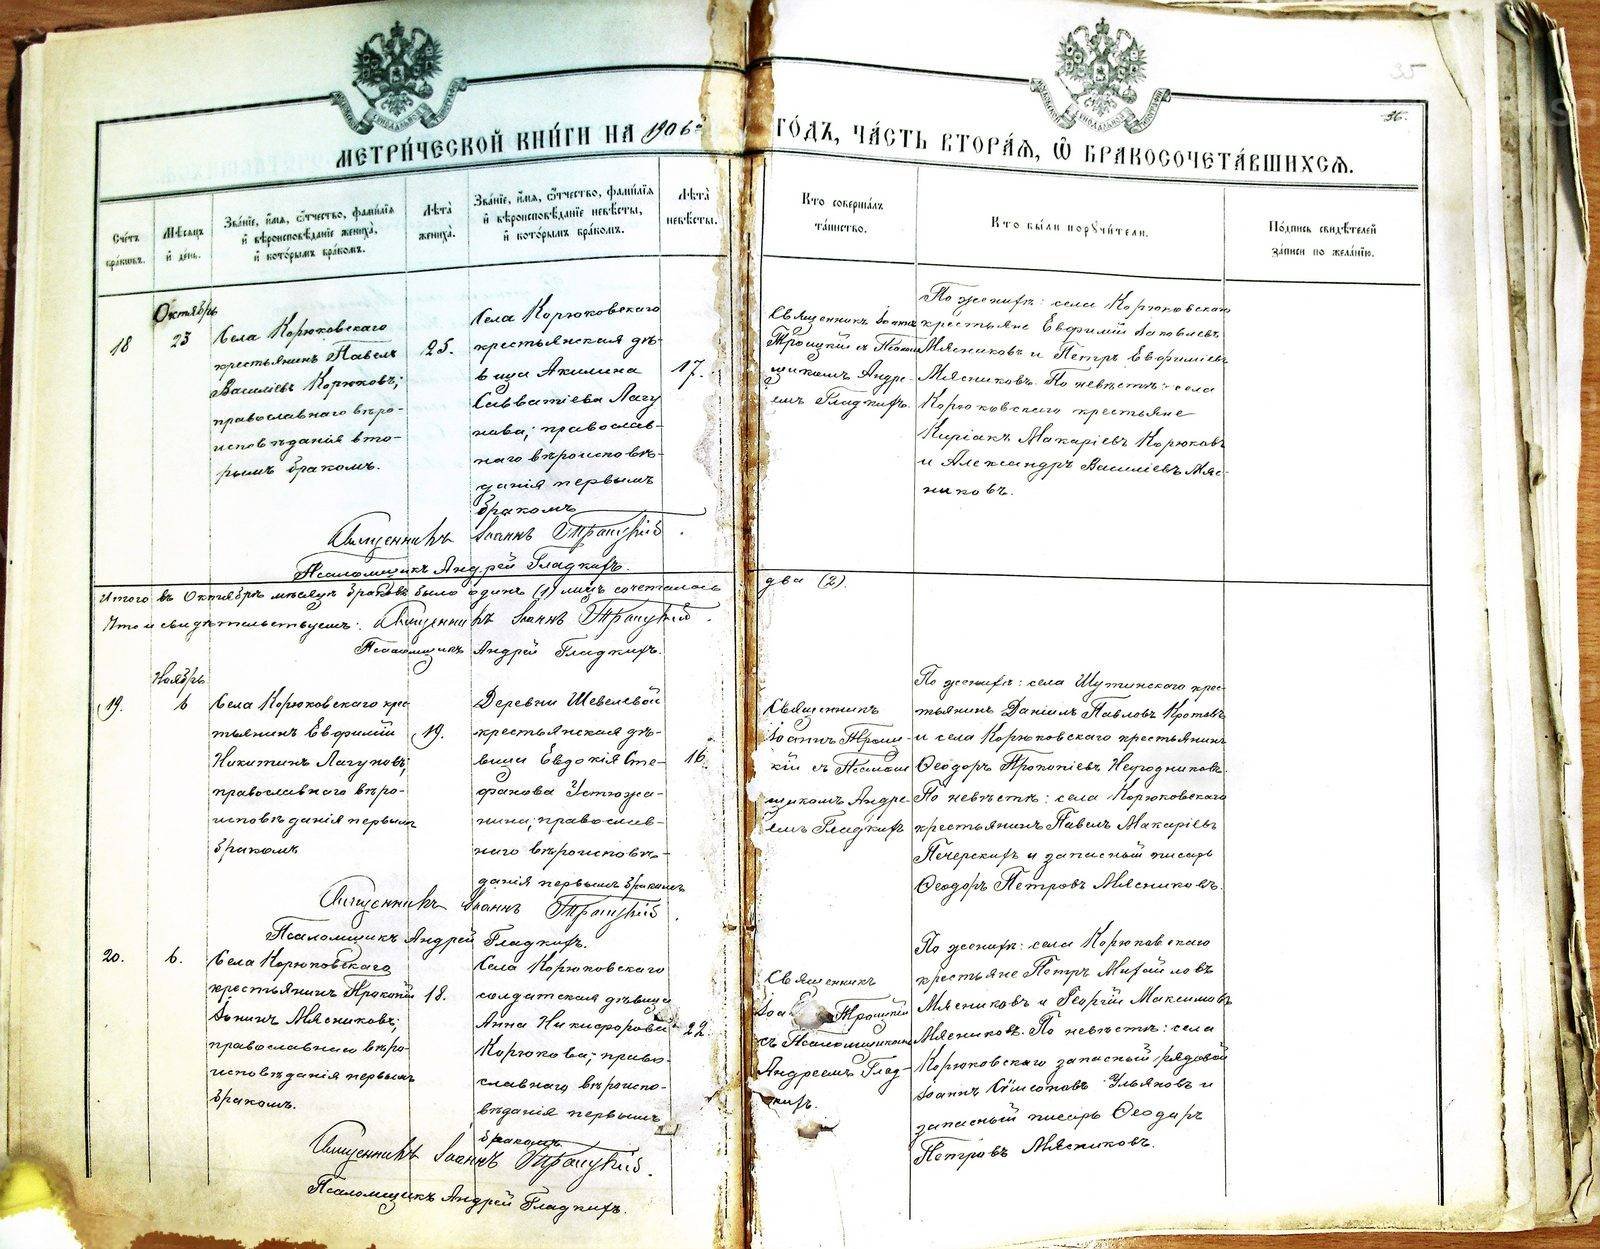 35
36.
МЕТРИ́ЧЕСКОЙ КНИ́ГИ НА 1906й
ГО́ДЪ, ЧА́СТЬ ВТОРА́Я, Ѽ БРАКОСОЧЕТА́ВШИХСЯ.
Счетъ
бра́ковъ.
Мѣсяцъ
и́ де́нь.
Зва́нїе, и́мя, ѻ́тчество, фами́лїя
и́ вѣроисповѣ́данїе жениха̀,
и́ кото́рымъ бра́комъ.
Лѣта̀
жениха̀.
Зва́нїе, и́мя, ѻ́тчество, фами́лїя
и́ вѣроисповѣ́данїе невѣ́сты,
и́ кото́рымъ бра́комъ.
Лѣта̀
невѣ́сты.
Кто соверша́лъ
та́инство.
Кто бы́ли порꙋчи́тели.
По́дпись свидѣ́телей
за́писи по жела́нїю.
18
Октябрь
23
Села Корюковскаго
крестьянинъ Павелъ
Василіевъ Корюковъ;
православнаго вѣро-
исповѣданія вто-
рымъ бракомъ.
25.
Села Корюковскаго
крестьянская дѣ-
вица Акилина
Савватіева Лагу
нова; православ-
наго вѣроисповѣ-
данія первымъ
бракомъ
17.
Священникъ Іоаннъ
Троицкій съ Псалом
щикомъ Андре-
емъ Гладкихъ.
По женихѣ: села Корюковскаго
крестьяне Евфимій Іаковлевъ
Мясниковъ и Петръ Евфиміевъ
Мясниковъ. По невѣстѣ: села
Корюковскаго крестьяне
Киріакъ Макаріевъ Корюковъ
и Александръ Василіевъ Мяс-
никовъ.
Священникъ Іоаннъ Троицкій.
Псаломщикъ Андрей Гладкихъ.
Итого въ Октябрѣ мѣсяцѣ браковъ было одинъ (1) лицъ сочеталось
два (2).
Что и свидѣтельствуемъ: Священникъ Іоаннъ Троицкій.
Псаломщикъ Андрей Гладкихъ.
19.
Ноябрь
6
Села Корюковскаго крес
тьянинъ Евфимій
Никитинъ Лагуновъ;
православнаго вѣро-
исповѣданія первымъ
бракомъ
19.
Деревни Шевелевой
крестьянская дѣ-
вица Евдокія Сте-
фанова Устюжа-
нина; православ-
наго вѣроисповѣ-
данія первымъ бракомъ
16.
Священникъ
Іоаннъ Троиц-
кій съ Псалом
щикомъ Андре-
емъ Гладкихъ
По женихѣ: села Шутинскаго крес-
тьянинъ Даніилъ Павловъ Кротовъ
и села Корюковскаго крестьянинъ
Ѳеодоръ Прокопіевъ Негодниковъ.
По невѣстѣ: села Корюковскаго
крестьянинъ Павелъ Макаріевъ
Печерскихъ и запасный писарь
Ѳеодоръ Петровъ Мясниковъ.
Священникъ Іоаннъ Троицкій.
Псаломщикъ Андрей Гладкихъ.
20.
6.
Села Корюковскаго
крестьянинъ Прокопій
Іонинъ Мясниковъ;
православнаго вѣро-
исповѣданія первымъ
бракомъ.
18.
Села Корюковскаго
солдатская дѣвица
Анна Никифорова
Корюкова; право-
славнаго вѣроиспо-
вѣданія первымъ
бракомъ.
22
Священникъ
Троицкій
съ Псаломщикомъ
Андреемъ Глад-
кихъ.
По женихѣ: села Корюковскаго
крестьяне Петръ Михайловъ
Мясниковъ и Георгій Максимовъ
Мясников. По невѣстѣ: села
Корюковскаго запасный рядовой
Іоаннъ Сѵмеоновъ Ульяновъ и
запасный писарь Ѳеодоръ
Петровъ Мясниковъ.
Священникъ Іоаннъ Троицкій.
Псаломщикъ Андрей Гладкихъ.